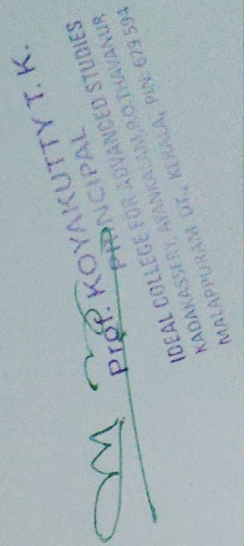 Prof. KOYAKUTTY T. K.
PRINCIPAL
IDEAL COLLEGE FOR ADVANCED STUDIES
KADAKASSERY, AYANKALAM.P.O.THAVANUR
MALAPPURAM DT., KERALA, PIN 679 594